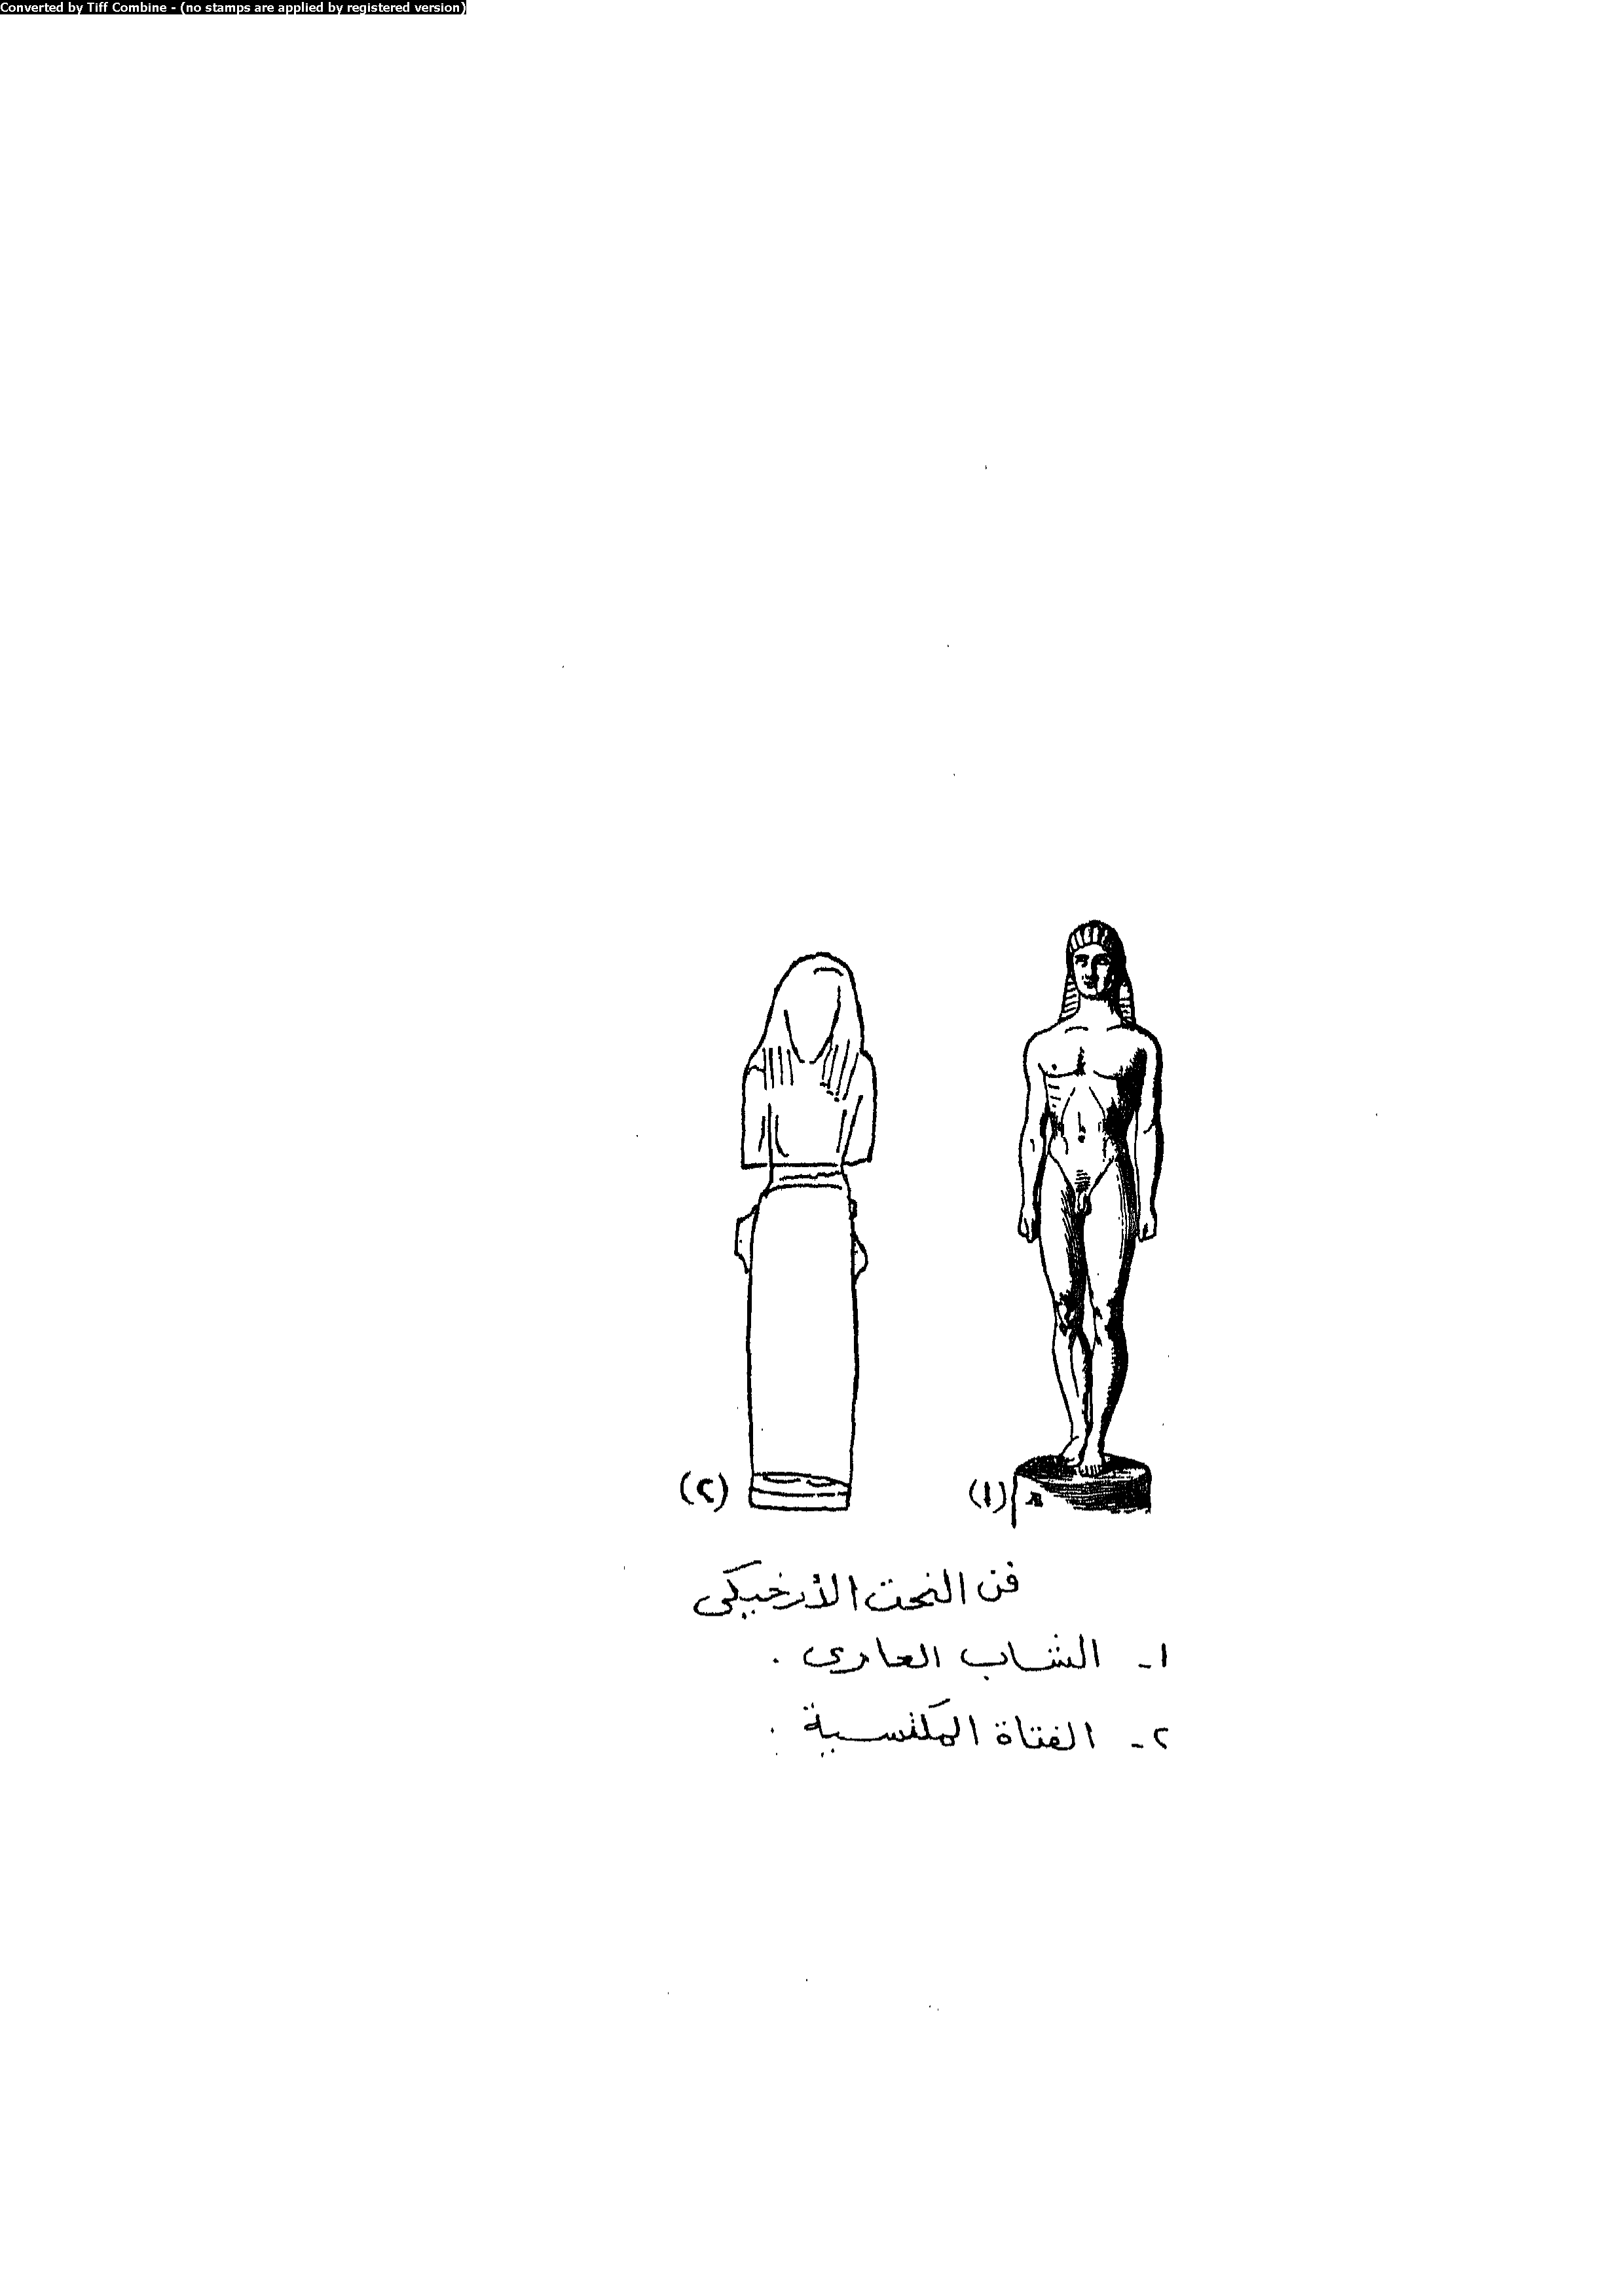 Converted by Tiff Combine - (no stamps are applied by registered version)
(٢) (١)
فن النحت الأرخيكى
١- الشاب العارى .
٢- الفتاة المكتسية .